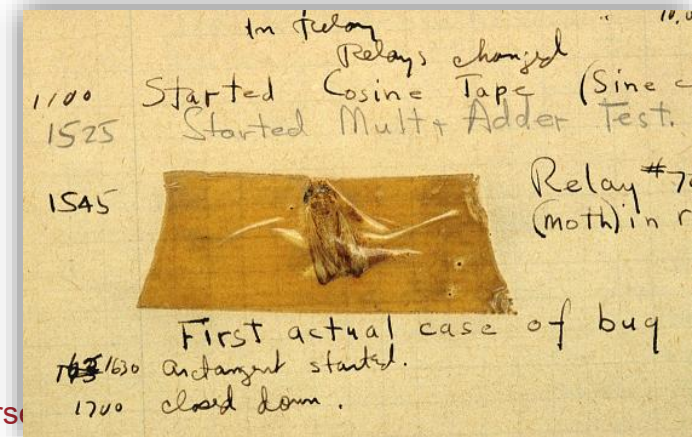 In relay
Relays changed
1100 Started Cosine Tape (Sine
1525 Started Mult + Adder Test.
1545 Relay #70
(moth) in
First actual case of bug
1630 arctangent started.
1700 closed down.